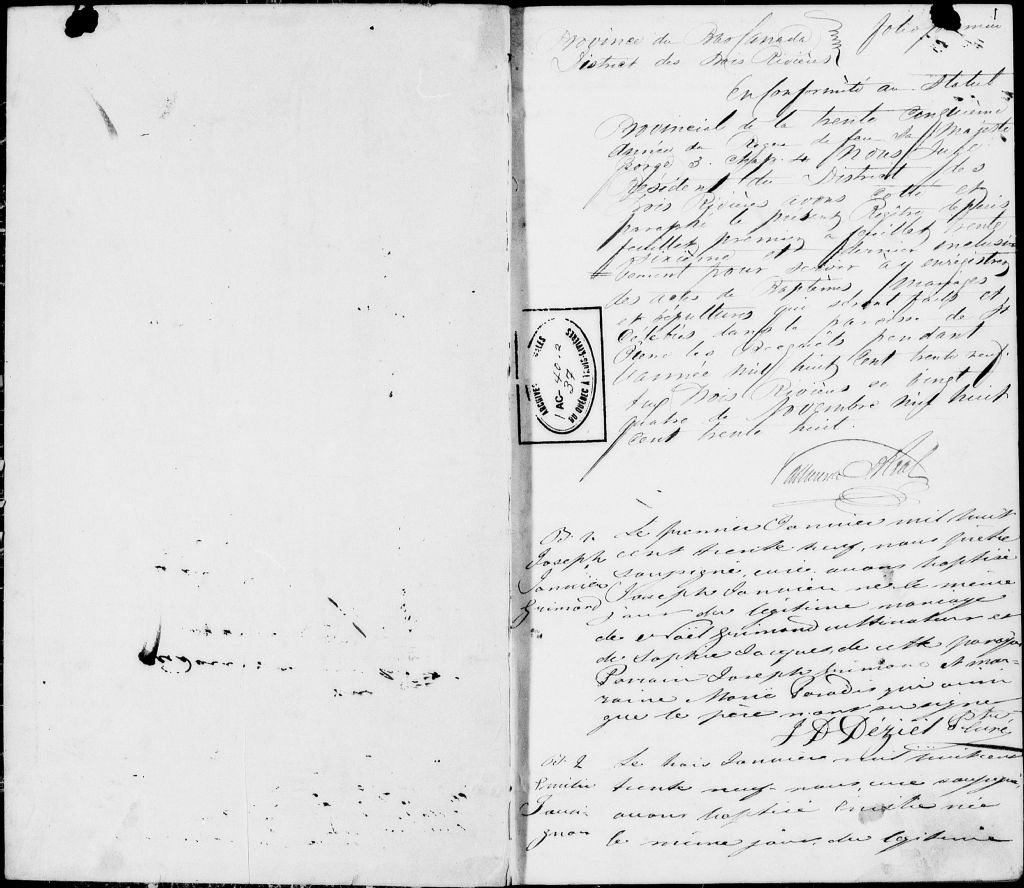 Province du Bas Canada
District des Trois Rivières
folio premier
1
En Conformité au Statut
Provincial de la trente cinquième
Année du Règne de feu Sa Majesté
George 3. Chap. 4 Nous Juge
Résident du District des
Trois Rivières avons Cotté et
paraphé le présent Régître depuis
feuillet premier à feuillet trente
sixième et dernier inclusi
vement pour servir à y enregistrer
des actes de Baptêmes Mariages
et Sépultures qui seront faits et
Célébrés dans la paroisse de St
Pierre les Becquets pendant
l'année mil huit Cent trente neuf.
Aux Trois Rivières ce vingt
quatre de Novembre mil huit
Cent trente huit.
ARCHIVES
AC-40.2
37
DU QUÉBEC À TROIS-RIVIÈRES
Vallières de St Réal
Bt. 1.
Joseph
Janvier
Grimard
Le premier Janvier mil huit
cent trente neuf, nous prêtre
soussigné, curé, avons baptisé
Joseph Janvier né le même
jour du légitime mariage
de Noël Grimard cultivateur et
de Sophie Jacques de cette paroisse
Parrain Joseph Grimard et mar-
raine Marie Paradis qui ainsi
que le père n'ont su signer
J D Déziel Ptre Curé
Bt. 2
Emilie
Le trois Janvier mil huit cent
trente neuf nous, curé soussigné
avons baptisé Emélie née
le même jour, du légitime